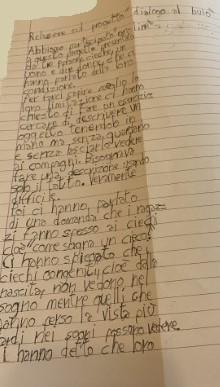 Relazione sul progetto "dialogo al buio"
Abbiamo partecipato
a questo
uono e due
hanno parlato della loro
condizione.
Per farci capire meglio la
loro situazione ci hanno
chiesto di fare un esercizio
cercare di descrivere un
oggetto tenendolo in
mano ma senza guardarlo
e senza lasciarlo vedere
ai compagni. Bisognava
fare una descrizione usando
solo il tatto. Veramente
difficile.
Poi ci hanno parlato
di una domanda che i ragazzi
si fanno spesso ai ciechi
cioè come sogna un cieco?
Ci hanno spiegato che i
ciechi congeniti, cioè dalla
nascita, non vedono nel
sogno mentre quelli che
hanno perso la vista più
tardi nei sogni possono vedere.
i hanno detto che loro